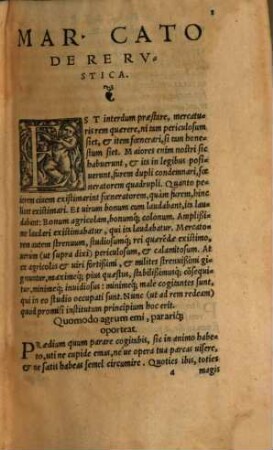 MAR. CATO
DE RE RV-
STICA.
EST interdum præstare, mercatu-
ris rem quærere, ni tum periculosum
siet, & item fœnerari, si tum hones-
tum siet. Maiores enim nostri sic
habuerunt, & ita in legibus posi-
uerunt, furem dupli condemnari, fœ-
neratorem quadrupli. Quanto pe-
iorem ciuem existimarint fœneratorem, quàm furem, hinc
licet existimari. Et uirum bonum cum laudabant, ita lau-
dabant: Bonum agricolam, bonumq; colonum. Amplissi-
me laudari existimabatur, qui ita laudabatur. Mercato-
rem autem strenuum, studiosumq; rei quærédæ existimo,
uerum (ut supra dixi) periculosum, & calamitosum. At
ex agricolis & uiri fortissimi, & milites strenuissimi gi-
gnuntur, maximeq; pius quæstus, stabilissimusq; cōsequi-
tur, minimeq; inuidiosus: minimeq; male cogitantes sunt,
qui in eo studio occupati sunt. Nunc (ut ad rem redeam)
quod promisi institutum principium hoc erit.
Quomodo agrum emi, pararíq;
oporteat.
Prædium quum parare cogitabis, sic in animo habe-
to, uti ne cupide emas, ne ue opera tua parcas uisere,
& ne satis habeas semel circumire. Quoties ibis, toties
a magis